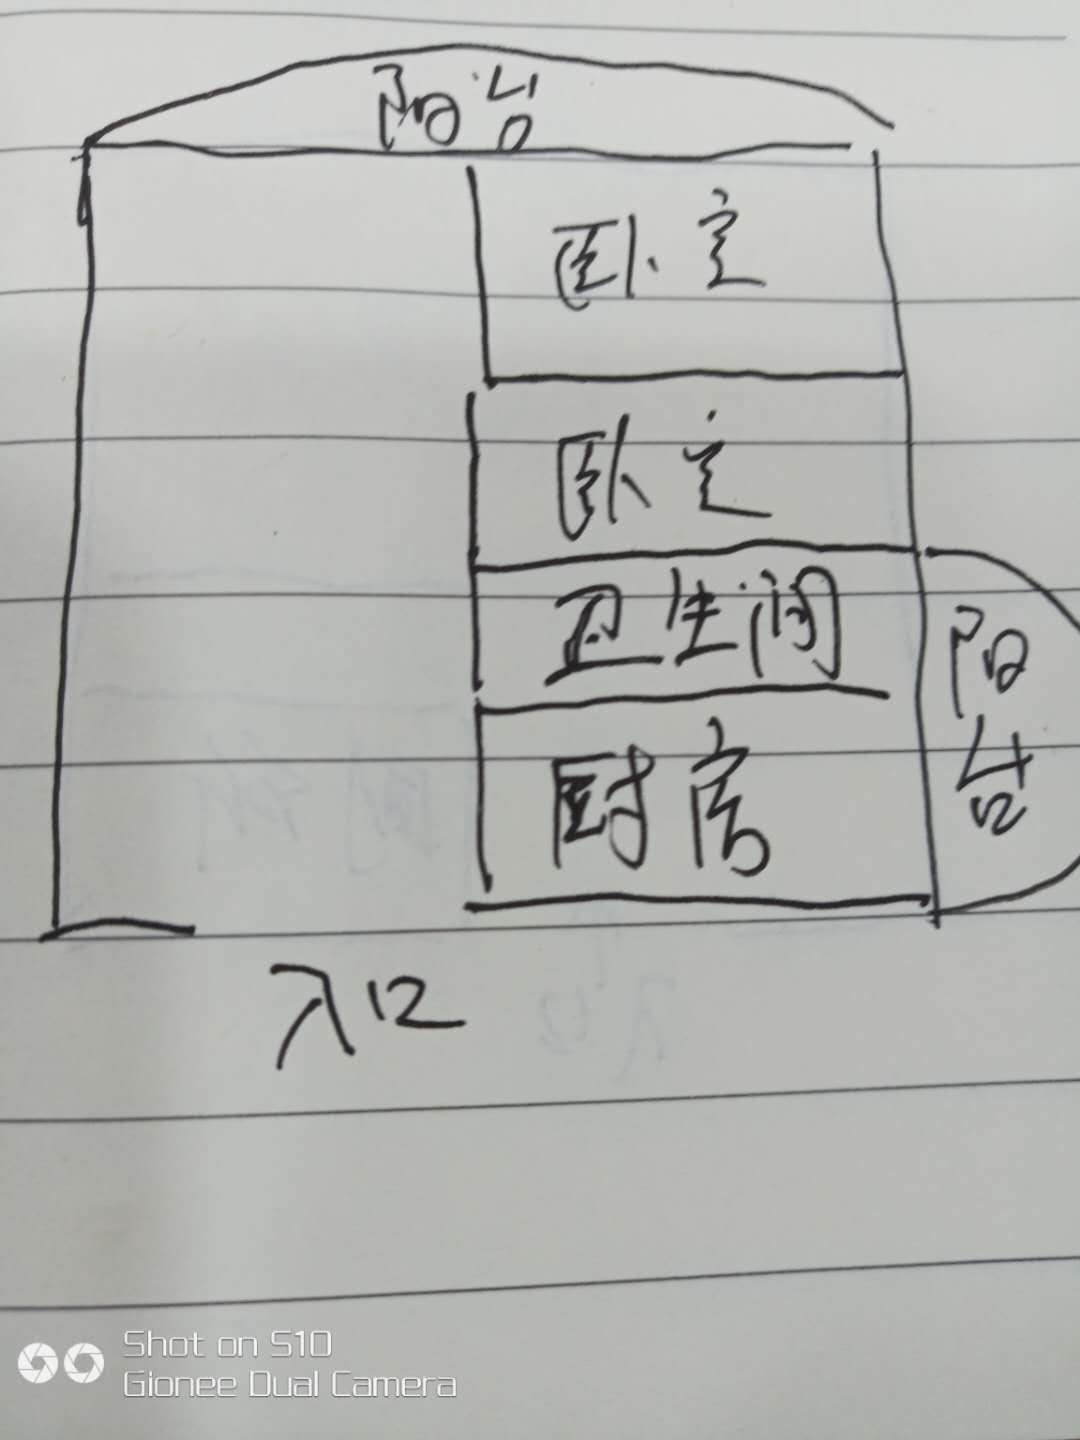 阳台
卧室
卧室
卫生间
阳台
厨房
入口
Shot on S10
Gionee Dual Camera